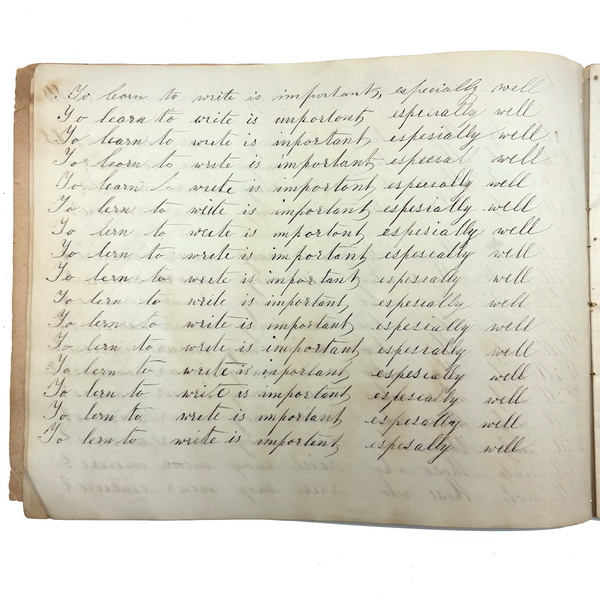 To learn to write is important, especially well
To learn to write is important especially well
To learn to write is inportant espesially well
To learn to write is important especial well
To learn to write is important especially well
To lern to write is important espesially well
To lern to wcite is important, espesially well
To lern to write is important espesially well
To lern to write is inportant espesially well
To lern to write is important, espesially well
To lern to write is important espesially well
To lern to write is important espesially well
To lern to write is important, espesially well
To lern to write is important espesially well
To lern to write is important espesally well
To lern to write is important espesally well